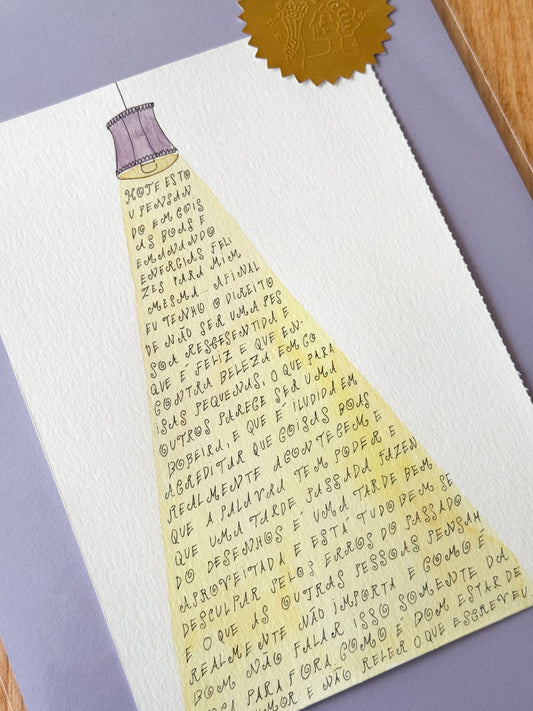 HOJE ESTO
U PENSAN
DO EM COIS
AS BOAS E
EMANANDO
ENERGIAS FELI
ZES PARA MIM
MESMA. AFINAL
EU TENHO O DIREITO
DE NÃO SER UMA PES
SOA RESSESENTIDA E
QUE É FELIZ E QUE EN-
CONTRA BELEZA EM CO
ISAS PEQUENAS, O QUE PARA
OUTROS PARECE SER UMA
BOBEIRA, E QUE É ILUDIDA EM
ACREDITAR QUE COISAS BOAS
REALMENTE ACONTECEM E
QUE A PALAVRA TEM PODER E
QUE UMA TARDE PASSADA FAZEN
DO DESENHOS É UMA TARDE BEM
APROVEITADA E ESTÁ TUDO BEM SE
DESCULPAR PELOS ERROS DO PASSADO
E O QUE AS OUTRAS PESSOAS PENSAM
REALMENTE NÃO IMPORTA E COMO É
BOM NÃO FALAR ISSO SOMENTE DA
BOCA PARA FORA, COMO É BOM ESTAR DE
HUMOR E NÃO RELER O QUE ESCREVEU